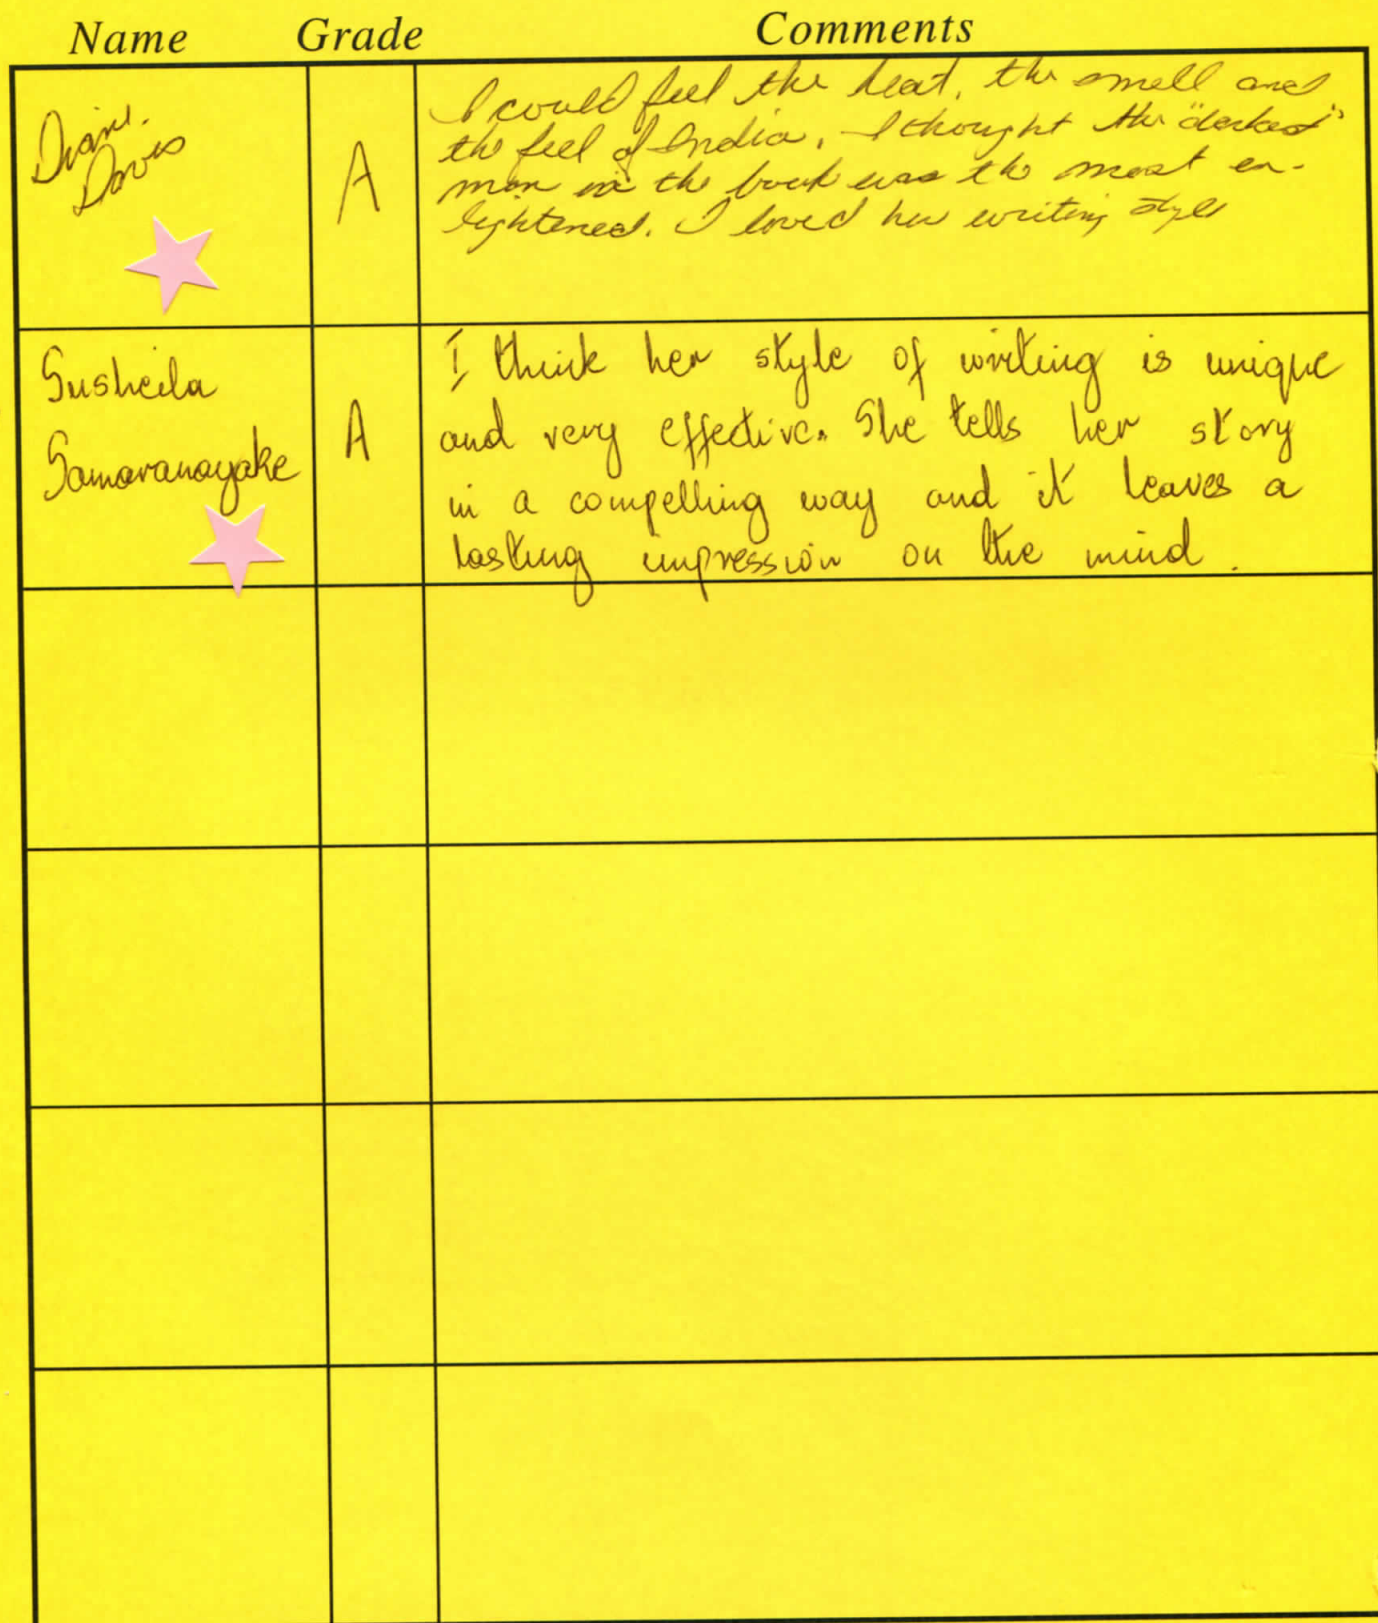 Name Grade Comments
Diane
Davis
A
I could feel the heat, the smell and
the feel of India. I thought the "darkest"
man in the book was the most en-
lightened. I loved her writing style
Susheila
Samaranayake
A
I think her style of writing is unique
and very effective. She tells her story
in a compelling way and it leaves a
lasting impression on the mind.